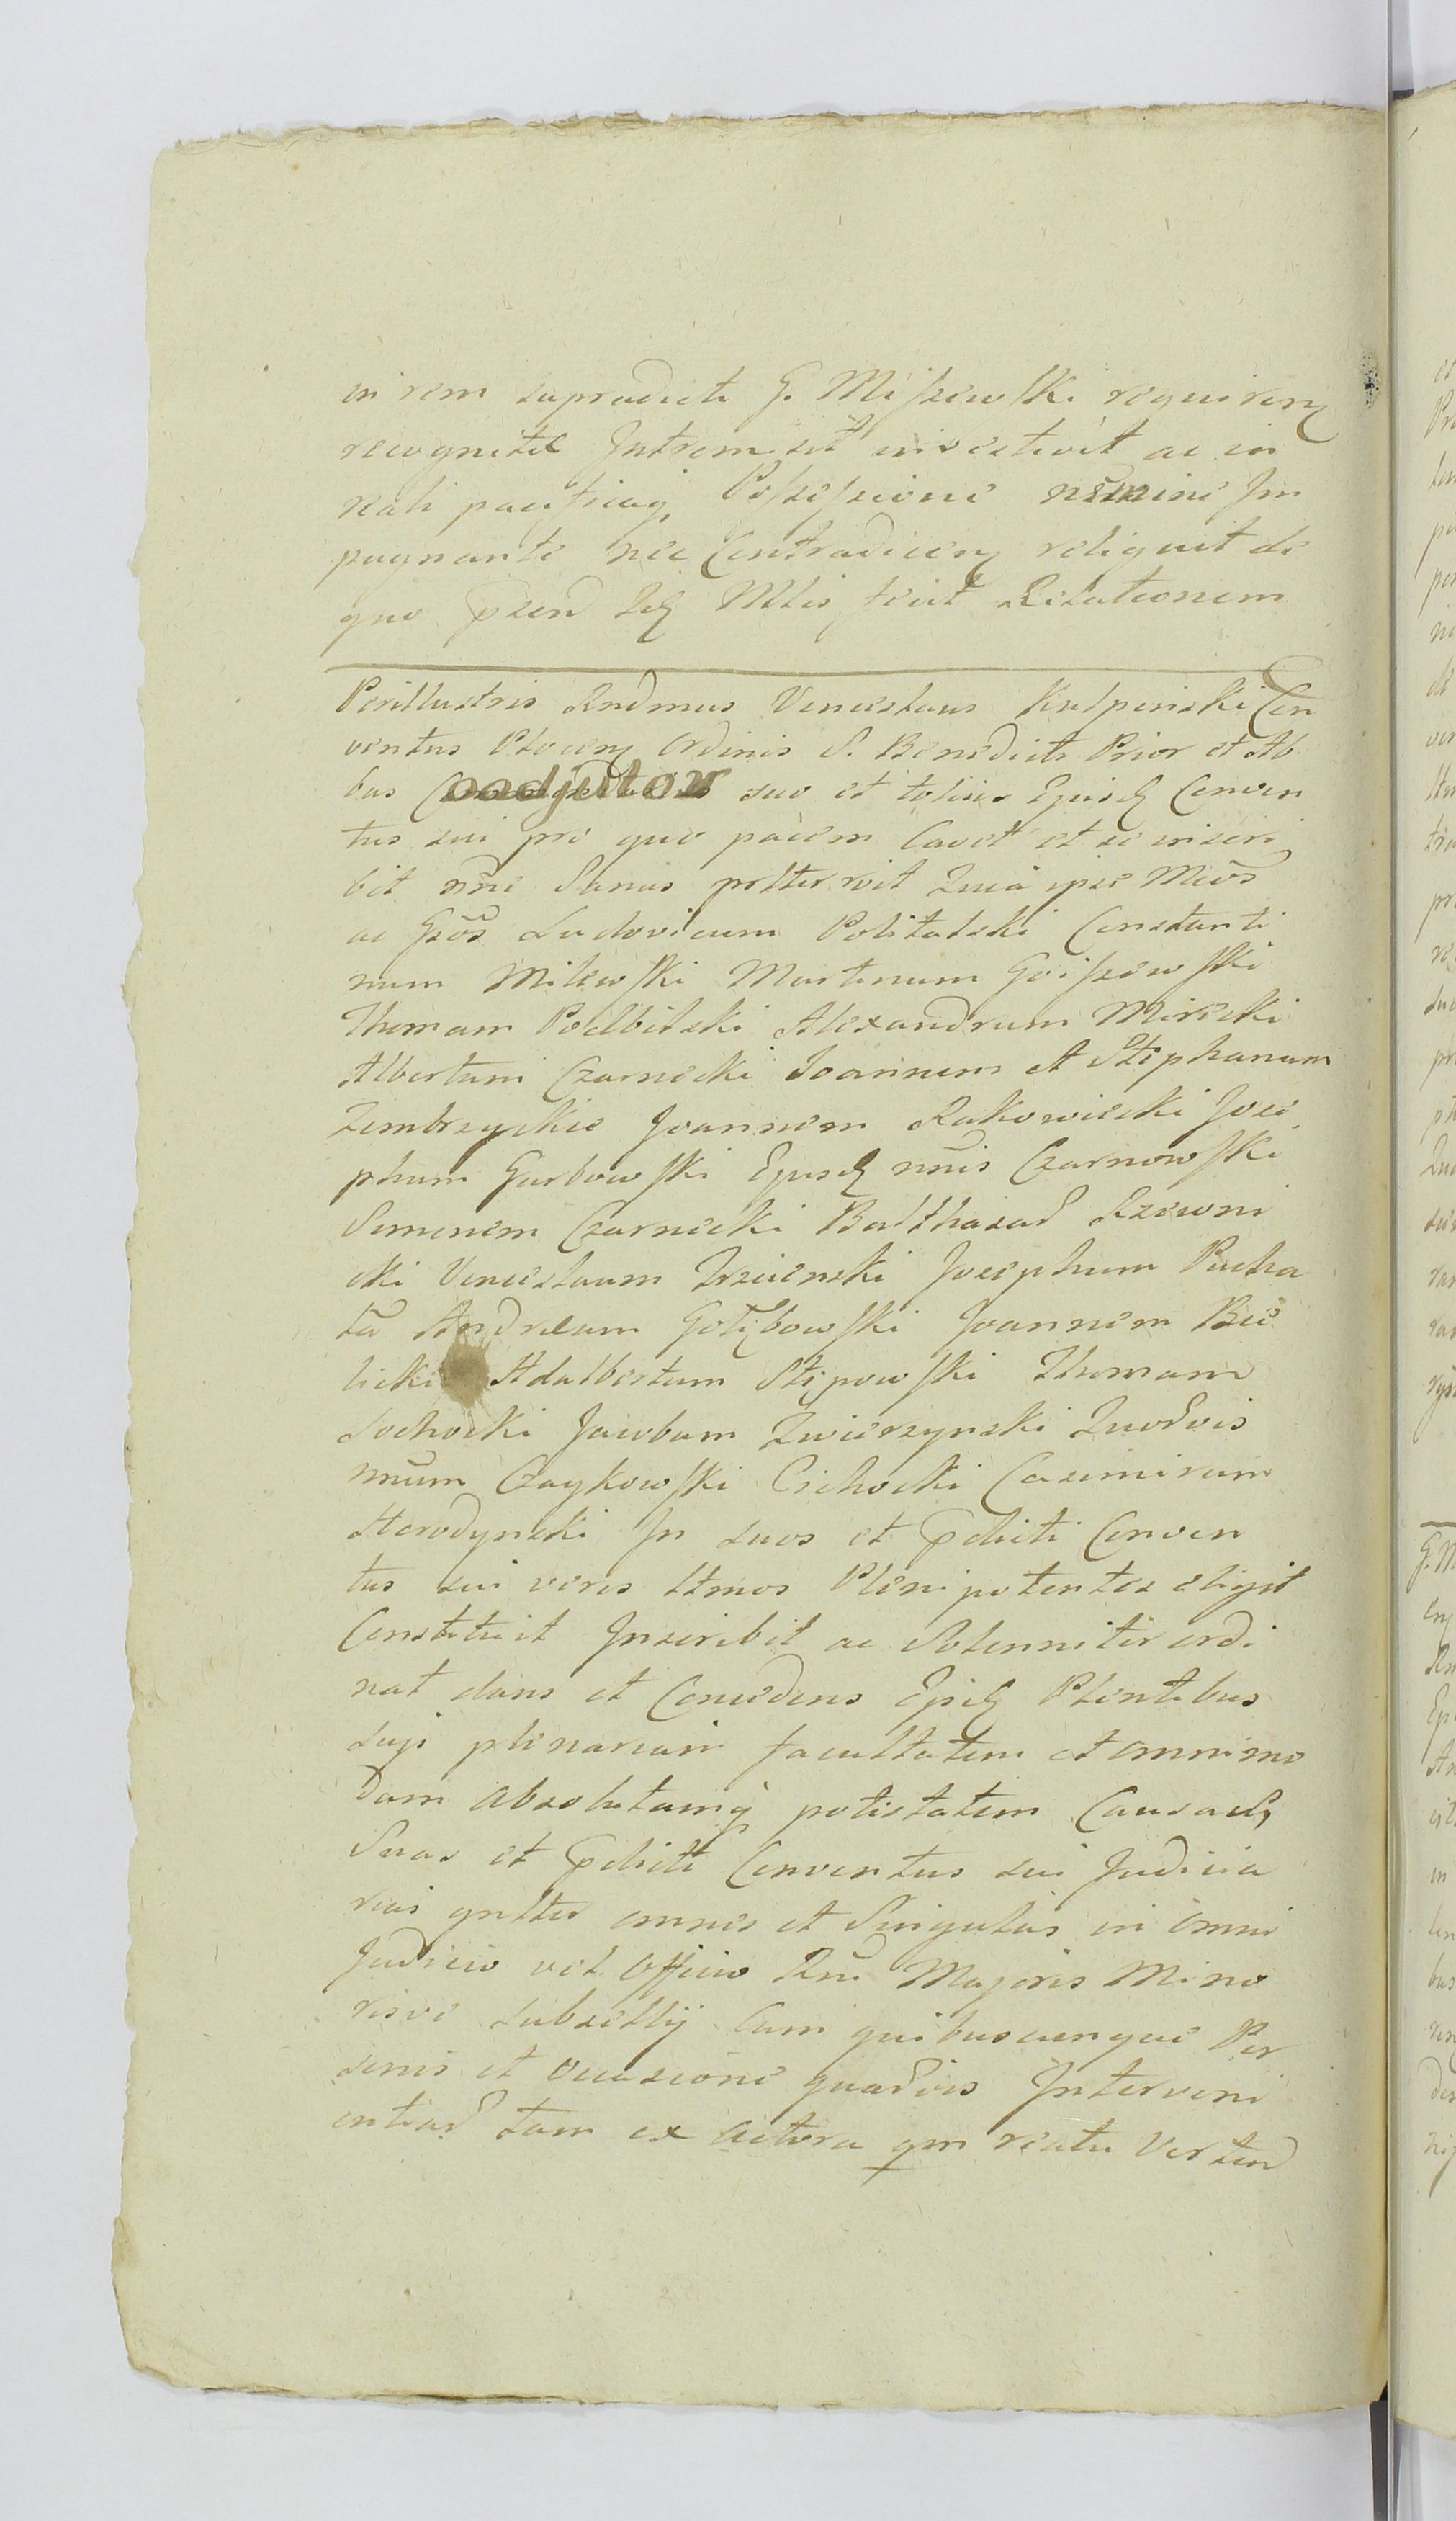 in rem supradicti G. Miszewski requirenq
recognitae Intromisit investivit ac in
reali pacificaq Possessione nemine Im
pugnante nec Contradicenq reliquit de
quo Mltis fecit Relationem
Perillustris Rndmus Venceslaus Kulpinski Con
ventus Plocenq Ordinis S. Benedicti Prior et Ab
bas Coadjutor suo et totius Ejusdq Conven
tus sui pro quo pacem Cavet et se inscri
bit nne Sanus prltter rvit Quia ipse Mcos
ac Gsos Ludovicum Politalski Constanti
num Milewski Martinum Goiszewski
Thomam Podbilski Alexandrum Mirecki
Albertum Czarnecki Joannem et Stephanum
Zembrzyckie Joannem Rakowiecki Jose
phum Garbowski Ejusdq nnis Czarnowski
Simonem Czarnecki Balthasad Rzewni
cki Venceslaum Trzcienski Josephum Pucha
ta Andream Gołębowski Joannem Bie
licki Adalbertum Stępowski Thomam
Sochocki Jacobum Zwierzynski Quodvis
nnum Czaykowski Cichocki Casimirum
Starodynski In suos et pdicti Conven
tus sui veros lttmos Plenipotentes eligit
Constituit Inscribit ac Solenniter ordi
nat dans et Concedens Plentibus
suji plenariam facultatem et omnimo
dam absolutamq potestatem Causas
Suas et pdicti Conventus sui Judicia
rias gnltter omnes et Singulas in omni
Judicio vel Officio Rni Majoris Mino
risve Subsellij Cum quibuscunque Per
sonis et occasione quadvis Interveni
entiad tam ex actora qm reatu Vertend